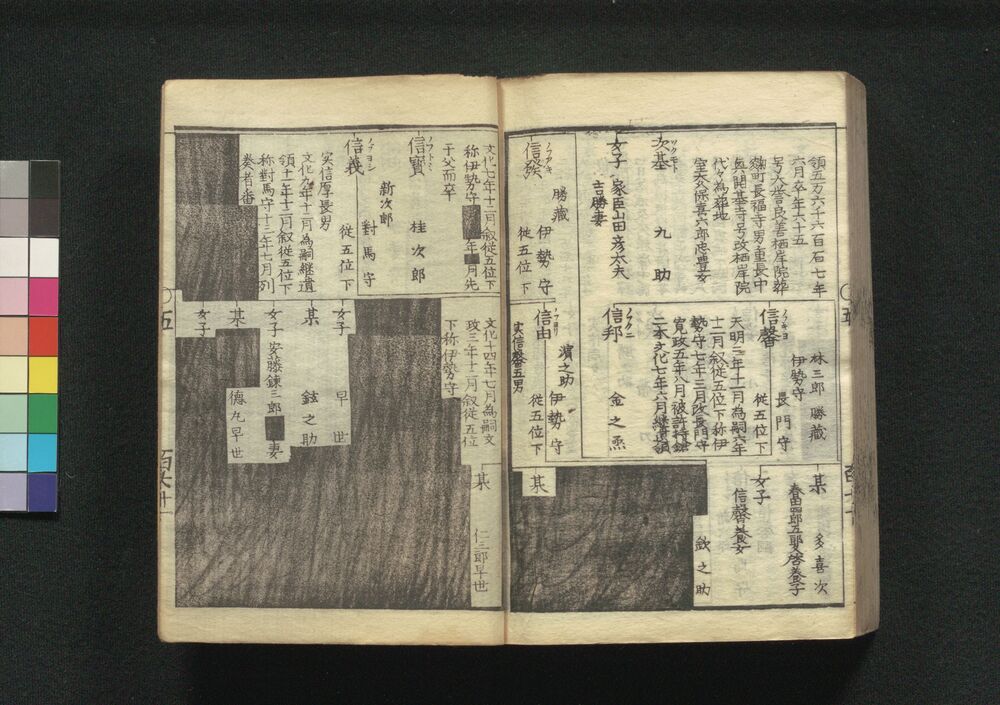 領五万六千六百石七年
六月卒年六十五
号大誉良善栖岸院葬
麹町長福寺男重長中
興開基寺号改栖岸院
代々為葬地
室太久保喜六郎忠豊女
ツクモト
次基 九助
女子 家臣山田彦太夫
吉勝妻
信発
勝藏
伊勢守
従五位下
林三郎 勝藏
伊勢守
ノフキヨ
信馨
長門守
従五位下
天明三年十一月為嗣六年
十二月叙従五位下称伊
勢守七年三月改長門守
寛政五年八月被許持鎗
二本文化七年六月継遺領
ノフクニ
信邦 金之烝
ノフヨリ
信由
濱之助
伊勢守
従五位下
実信馨五男
某 多喜次
春田四郎五郎久啓養子
女子
信馨養女
欽之助
某
文化七年十二月叙従五位下
称伊勢守
年
月先
于父而卒
ノフトミ
信寳 桂次郎
新次郎
ノフヨシ
信義
對馬守
従五位下
実信厚長男
文化九年十二月為嗣継遺
領十一年十二月叙従五位下
称對馬守十三年七月列
奏者番
文化十四年七月為嗣文
政三年十二月叙従五位
下称伊勢守
女子 早世
某 鉉之助
女子 安藤錬三郎
妻
某 德丸早世
女子
某 仁三郎早世
〇五